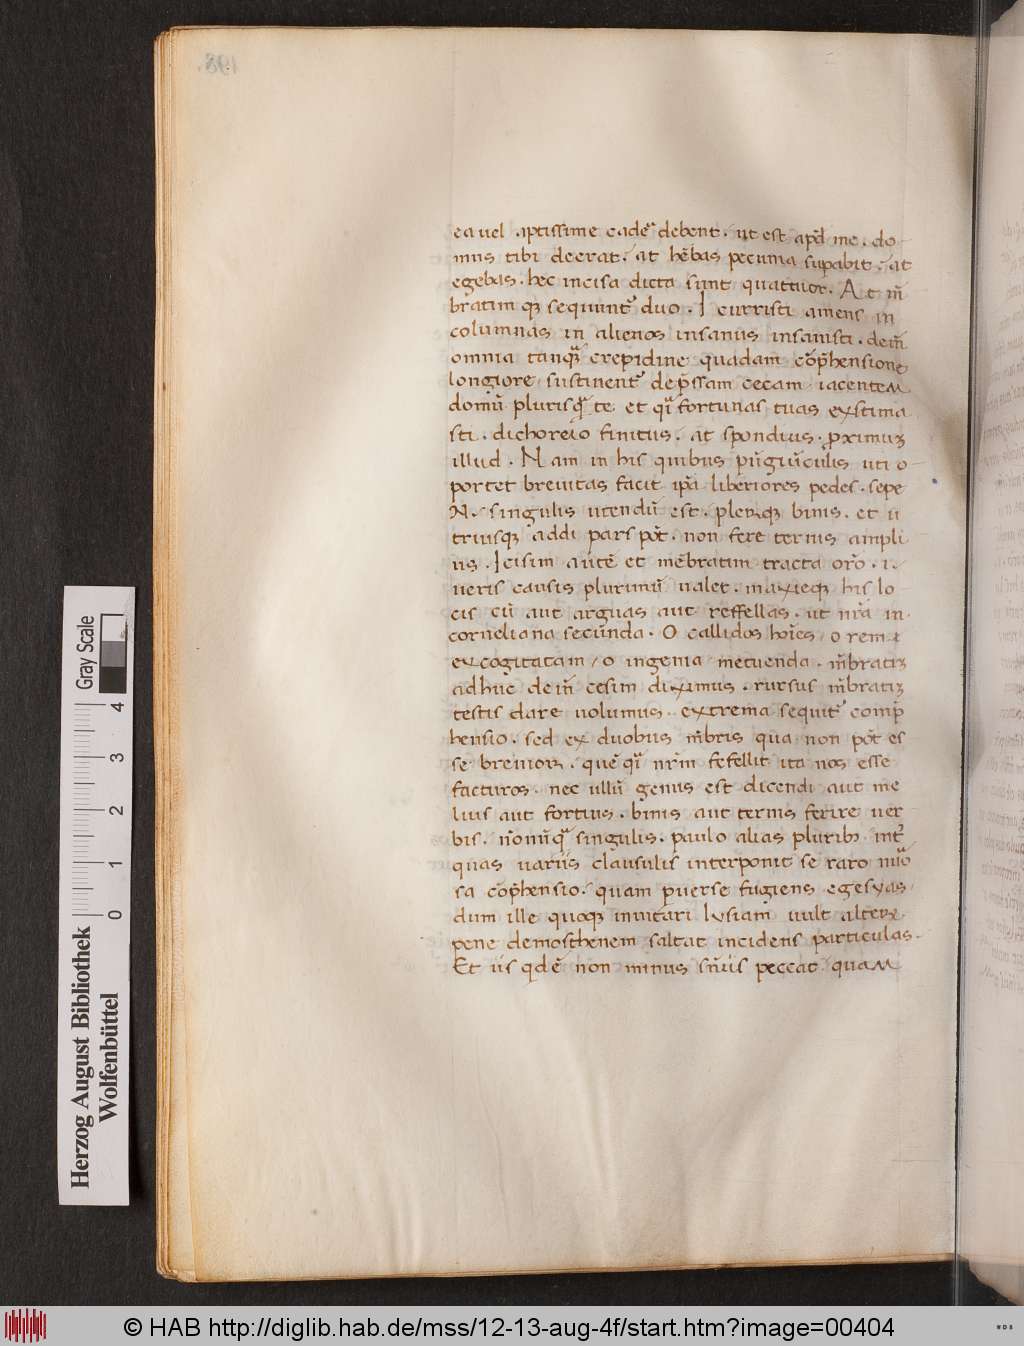 198.
ea uel aptissime cadẽ debent. ut est apd̃ me. do-
mus tibi deerat. at hẽbas pecunia supabit. at
egebas. hec incisa dicta sunt quattuor. At m̃
bratim qꝫ sequuntᷣ duo. Icurristi amens in
columnas in alienos insanus insanisti. dein̄
omnia tanqᷓ crepidine quadam cõp̃hensione
longiore sustinentᷣ dep̃ssam cecam iacentem
domũ plurisqᷓ te et qᷓ fortunas tuas exstima
sti. dichoreio finitus. at spondius. proximuꝫ
illud. Nam in his quibus pũgiũculis uti o-
portet breuitas facit ip̃a liberiores pedes. sepe
N. singulis utendũ est. plerꝫqꝫ binis. et u
triusqꝫ addi pars põt. non fere ternis ampli
us. Icisim autẽ et mẽbratim tracta orõ. i.
ueris causis plurimũ ualet. maxieqꝫ his lo-
cis cũ aut arguas aut reffellas. ut nr̃a in
corneliana secunda. O callidos hoĩes / o rem
excogitatam / o ingenia metuenda. m̃bratiꝫ
adhuc dein̄ cesim diximus. rursus m̃bratiꝫ
testis dare uolumus. extrema sequitᷣ comp̃
hensio. sed ex duobus m̃bris qua non põt es
se breuior. quẽ qᷓ nr̃m fefellit ita nos esse
facturos. nec ullũ genus est dicendi aut me
lius aut fortius. binis aut ternis ferire uer
bis. nõnũqᷓ singulis. paulo alias pluribꝫ. intᷣ
quas uariis clausulis interponit se raro nũo
sa cõp̃hensio. quam puerse fugiens egesyas.
dum ille quoqꝫ imitari lysiam uult alterꝫ
pene demosthenem saltat incidens particulas.
Et iis qdẽ non minus sñiis peccat quam
Herzog August Bibliothek
Wolfenbüttel
Gray Scale
0 1 2 3 4
© HAB http://diglib.hab.de/mss/12-13-aug-4f/start.htm?image=00404